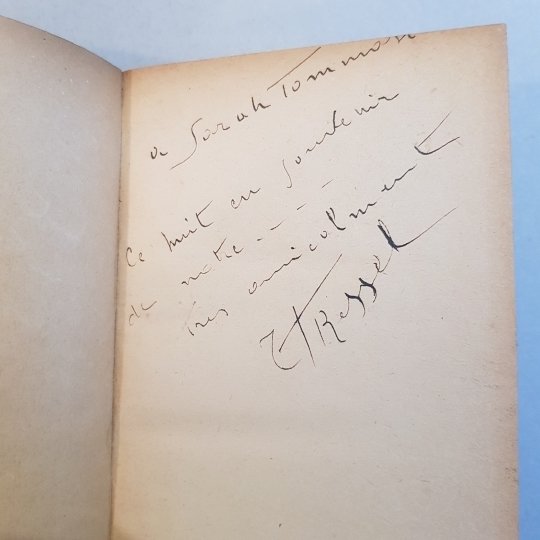 a Sarah Tommasi
Ce nuit en souvenir
de notre . - - -
Très amicalment
JKessel